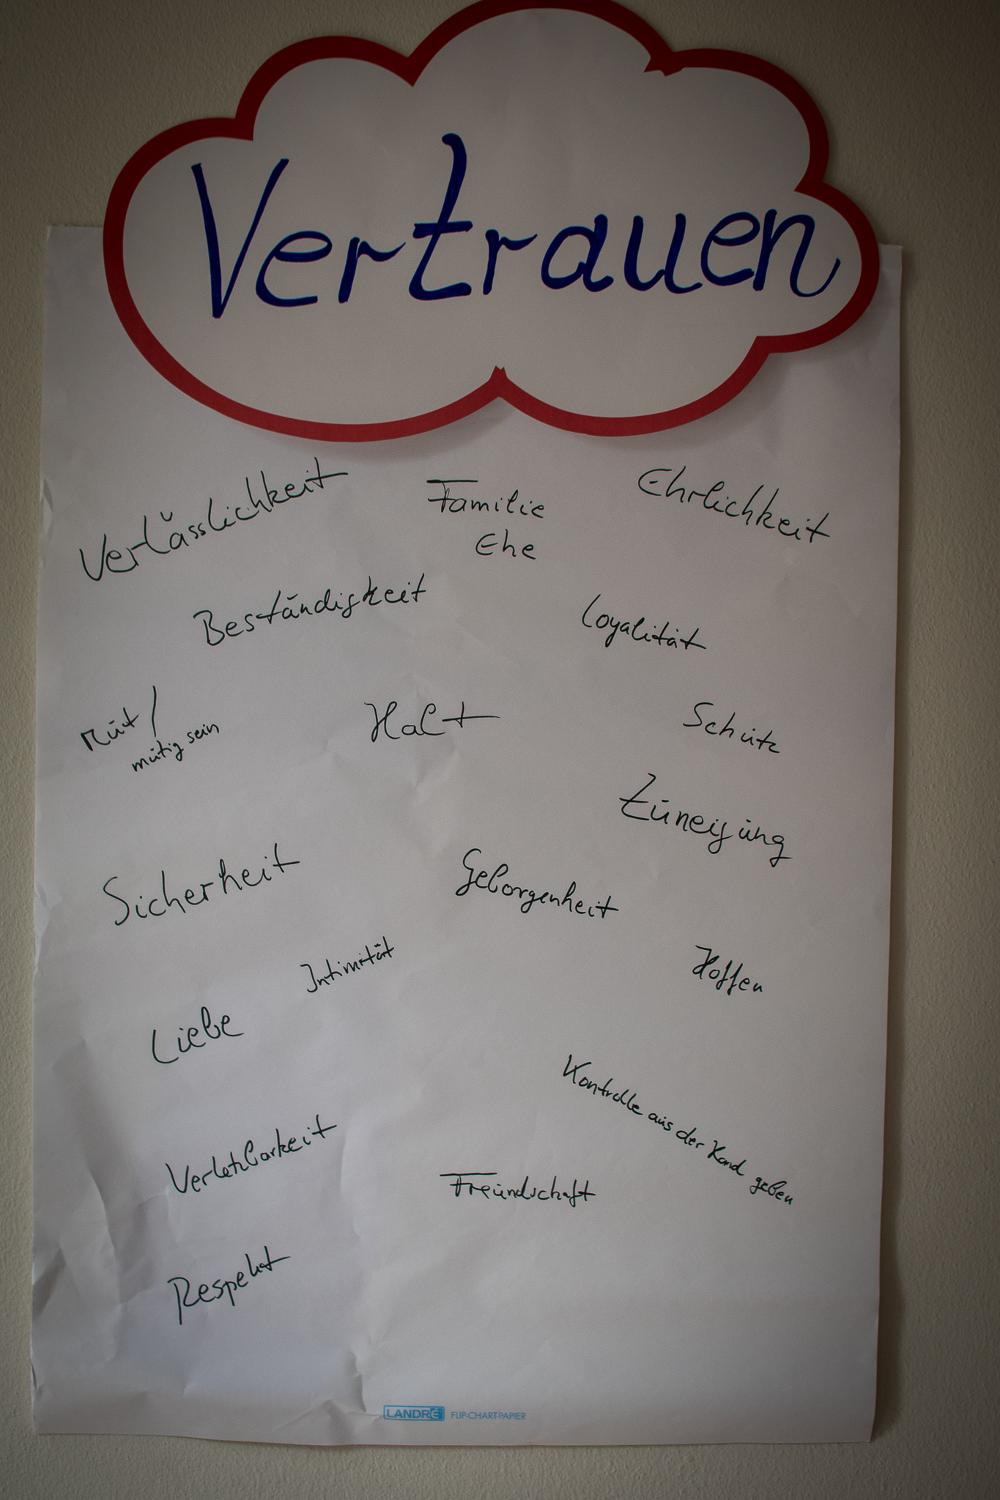 Vertrauen
Verlässlichkeit
Familie
Ehe
Ehrlichkeit
Beständigkeit
Loyalität
Mut /
mutig sein
Halt
Schutz
Zuneigung
Sicherheit
Geborgenheit
Intimität
Hoffen
Liebe
Kontrolle aus der Hand geben
Verletzbarkeit
Freundschaft
Respekt
LANDRÉ FLIP-CHART-PAPIER